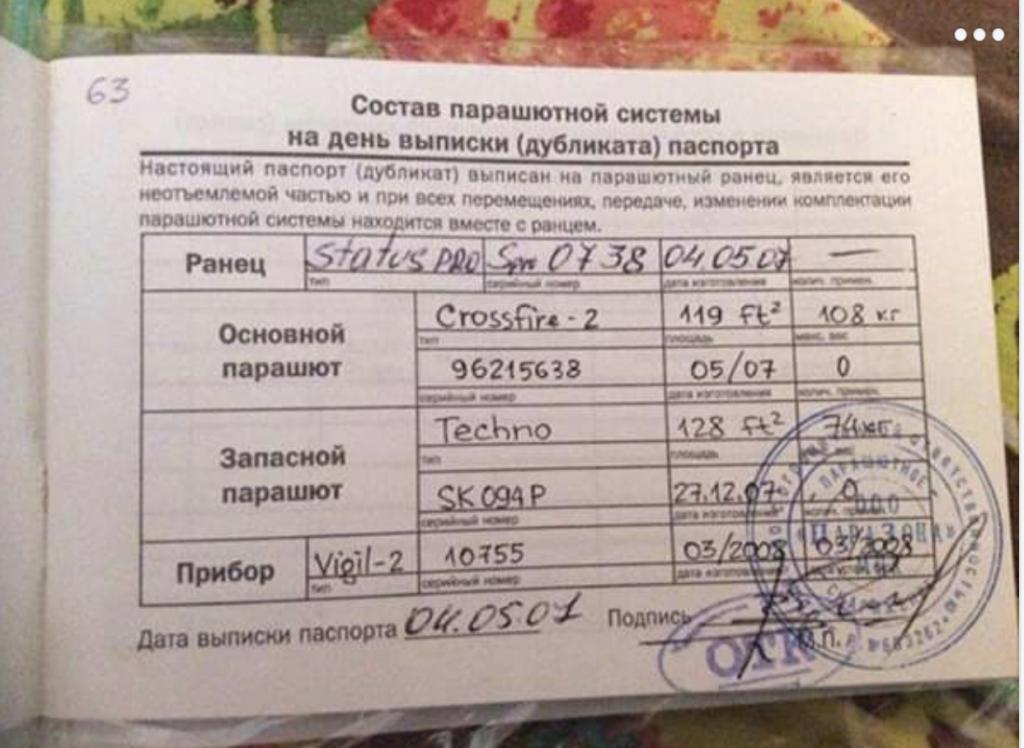 63
Состав парашютной системы
на день выписки (дубликата) паспорта
Настоящий паспорт (дубликат) выписан на парашютный ранец, является его
неотъемлемой частью и при всех перемещениях, передаче, изменении комплектации
парашютной системы находится вместе с ранцем.
Ранец Status PRO 0738 04.05.07 —
тип серийный номер дата изготовления колич. примен.
Основной парашют
Crossfire-2 119 ft² 108 кг
тип площадь макс. вес
96215638 05/07 0
серийный номер дата изготовления колич. примен.
Запасной парашют
Techno 128 ft² 74 кг
тип площадь вес
SK094P 27.12.07 0
серийный номер дата изготовления колич.
Прибор Vigil-2 10755 03/2008 03/2008
тип серийный номер дата изготовления
Дата выписки паспорта 04.05.07 Подпись
М.П.
ОТК
ПАРАШЮТНОЕ
ООО
«ПАРАЗОНА»